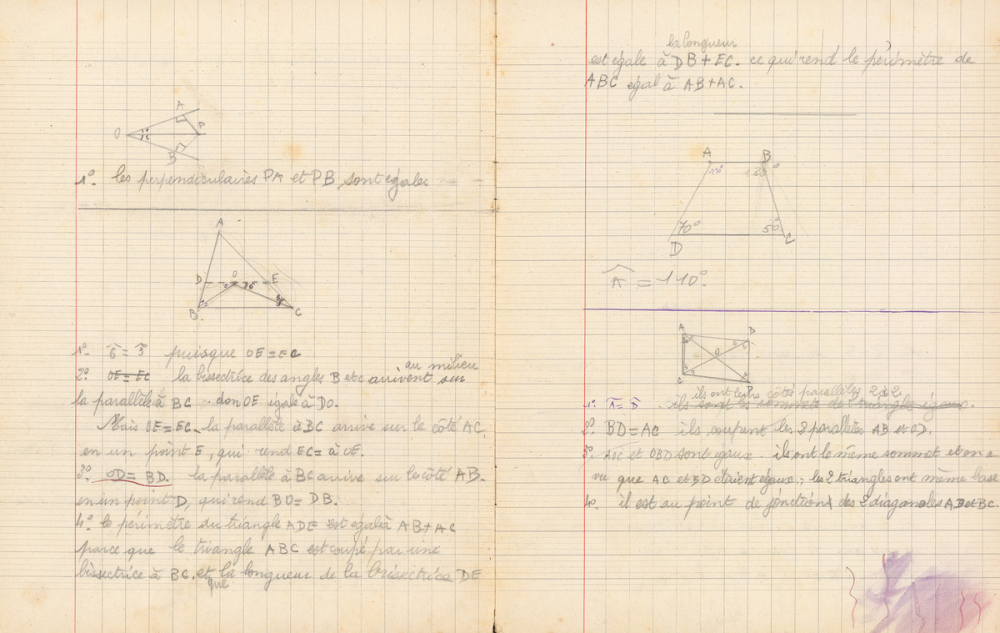 A
O
P
B
1º. les perpendiculaires PA et PB sont égales
A
D
O
E
B
C
1º. 6 = 3 puisque OE = EC
au milieu
2º. OE = EC la bissectrice des angles B et C arrivent sur
la parallèle à BC. don OE égale à DO.
Mais OE = EC. la parallèle à BC arrive sur le côté AC,
en un point E, qui rend EC = à OE.
3º. OD = BD. la parallèle à BC arrive sur le côté AB.
en un point D, qui rend BO = DB.
4º. le périmètre du triangle ADE est égal à AB + AC
parce que le triangle ABC est coupé par une
bissectrice à BC. et la longueur de la bissectrice DE
que
la longueur
est égale à DB + EC. ce qui rend le périmètre de
ABC égal à AB + AC.
A B
70° 50°
D C
A = 110°.
A D
O
C B
ils ont leurs côtés parallèles 2 à 2
1º. A = D. ils sont les sommets de triangle égaux.
2º. BD = AC ils coupent les 2 parallèles AB et CD.
3º. AOC et OBD sont égaux. ils ont le même sommet et on a
vu que AC et BD étaient égaux, les 2 triangles ont même base
4º. il est au point de jonction des 2 diagonales AD et BC.